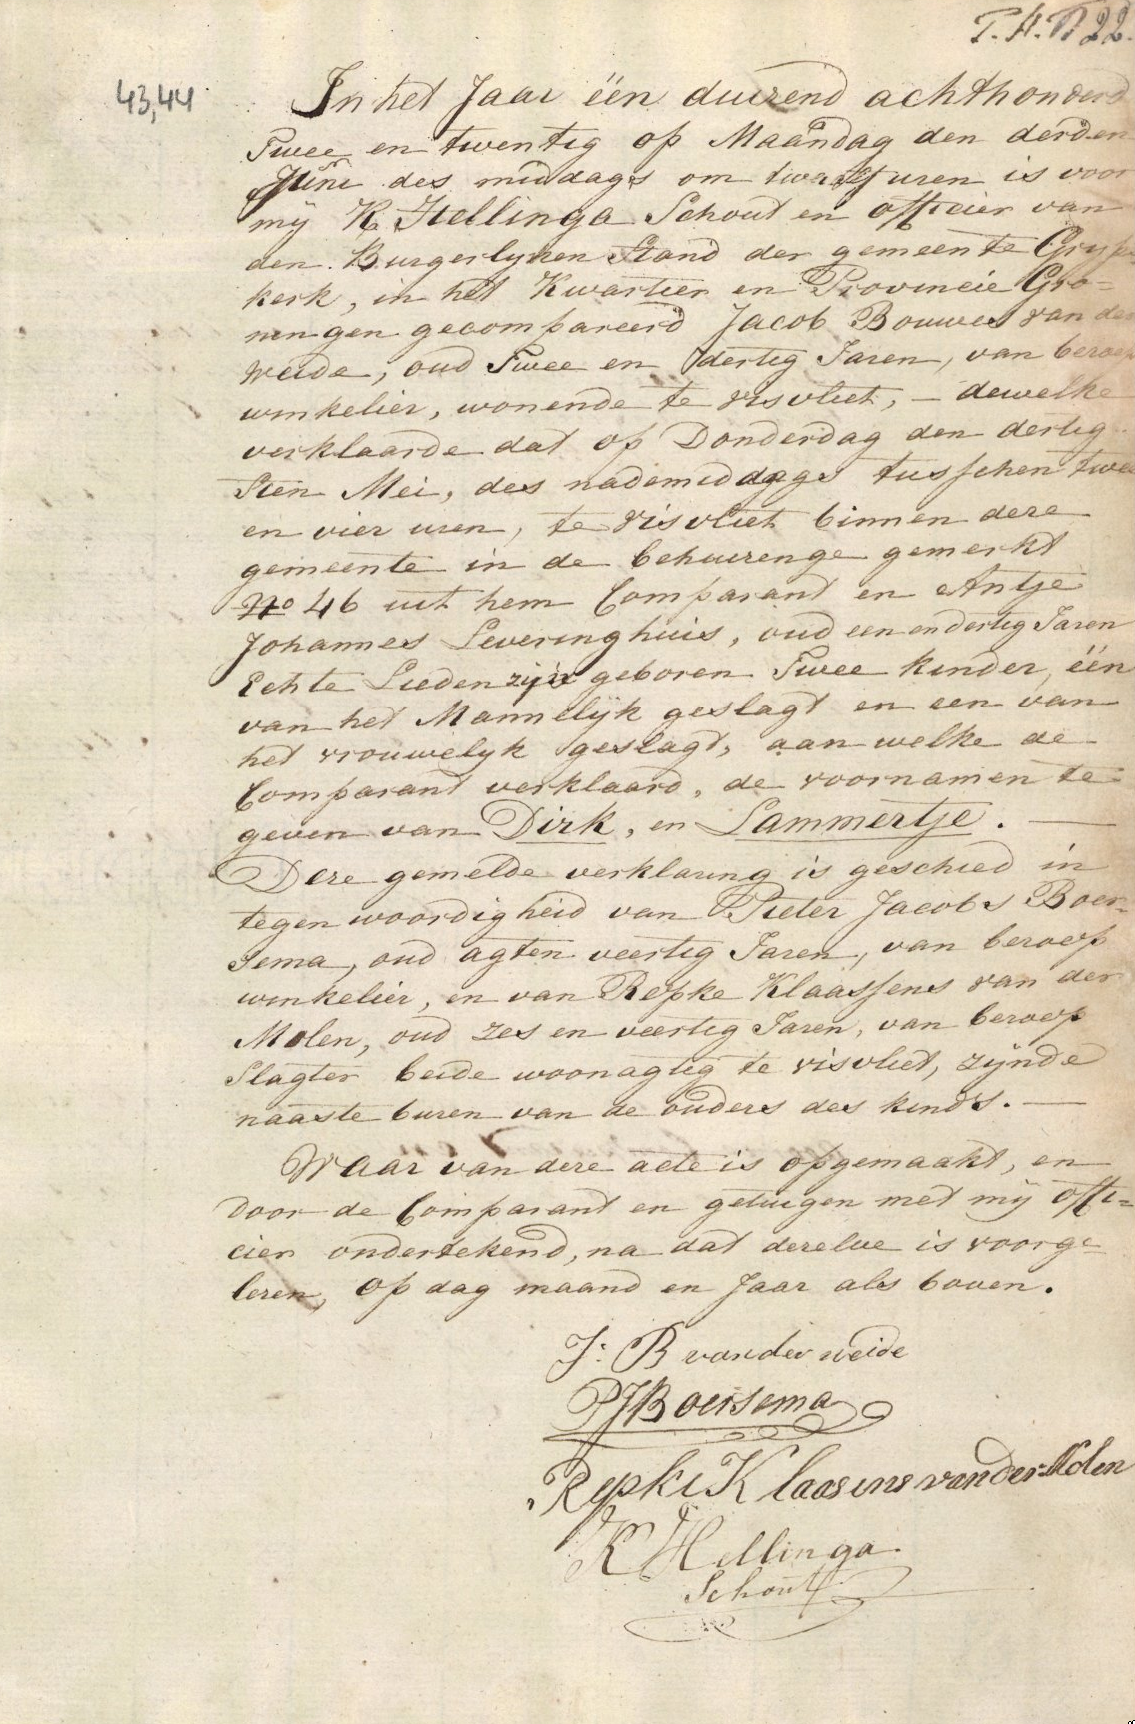 43,44
In het Jaar één duizend achthonderd
Twee en twentig op Maandag den derden
Juni des middags om twaalf uren is voor
mij K Hellinga Schout en officier van
den Burgerlyken Stand der gemeente Gryps=
kerk, in het Kwartier en Provincie Gro=
ningen gecompareerd Jacob Bouwes van der
Weide, oud Twee en dertig Jaren, van beroep
winkelier, wonende te visvliet, – dewelke
verklaarde dat op Donderdag den dertig
Sten Mei, des nademiddags tusschen twee
en vier uren, te visvliet binnen deze
gemeente in de behuizenge gemerkt
No 46 uit hem Comparant en Antje
Johannes Leveringhuis, oud een en dertig Jaren
Echte Lieden zijn geboren Twee kinder, één
van het Mannelijk geslagt en een van
het vrouwelyk geslagt, aan welke de
Comparant verklaard, de voornamen te
geven van Dirk, en Lammertje. —
Deze gemelde verklaring is geschied in
tegenwoordigheid van Pieter Jacobs Boer=
sema, oud agt en veertig Jaren, van beroep
winkelier, en van Repke Klaassens van der
Molen, oud zes en veertig Jaren, van beroep
Slagter beide woonagtig te visvliet, zijnde
naaste buren van de ouders des kinds. —
Waar van deze acte is opgemaakt, en
door de Comparant en getuigen met mij offi=
cier ondertekend, na dat dezelve is voorge=
lezen, op dag maand en Jaar als boven.
J: B van der weide
PJ Boersema
Repke Klaasens van der Molen
K Hellinga
Schout